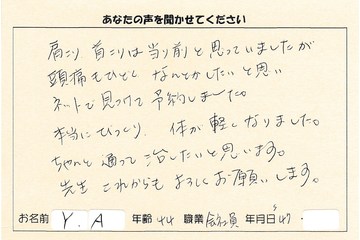 あなたの声を聞かせてください
肩こり 首こりは当り前と思っていましたが
頭痛もひどく なんとかしたいと思い
ネットで見つけて予約しました。
本当にびっくり、体が軽くなりました。
ちゃんと通って治したいと思います。
先生 これからもよろしくお願いします。
お名前 Y. A 年齢 44 職業 会社員 年月日 S47 ・